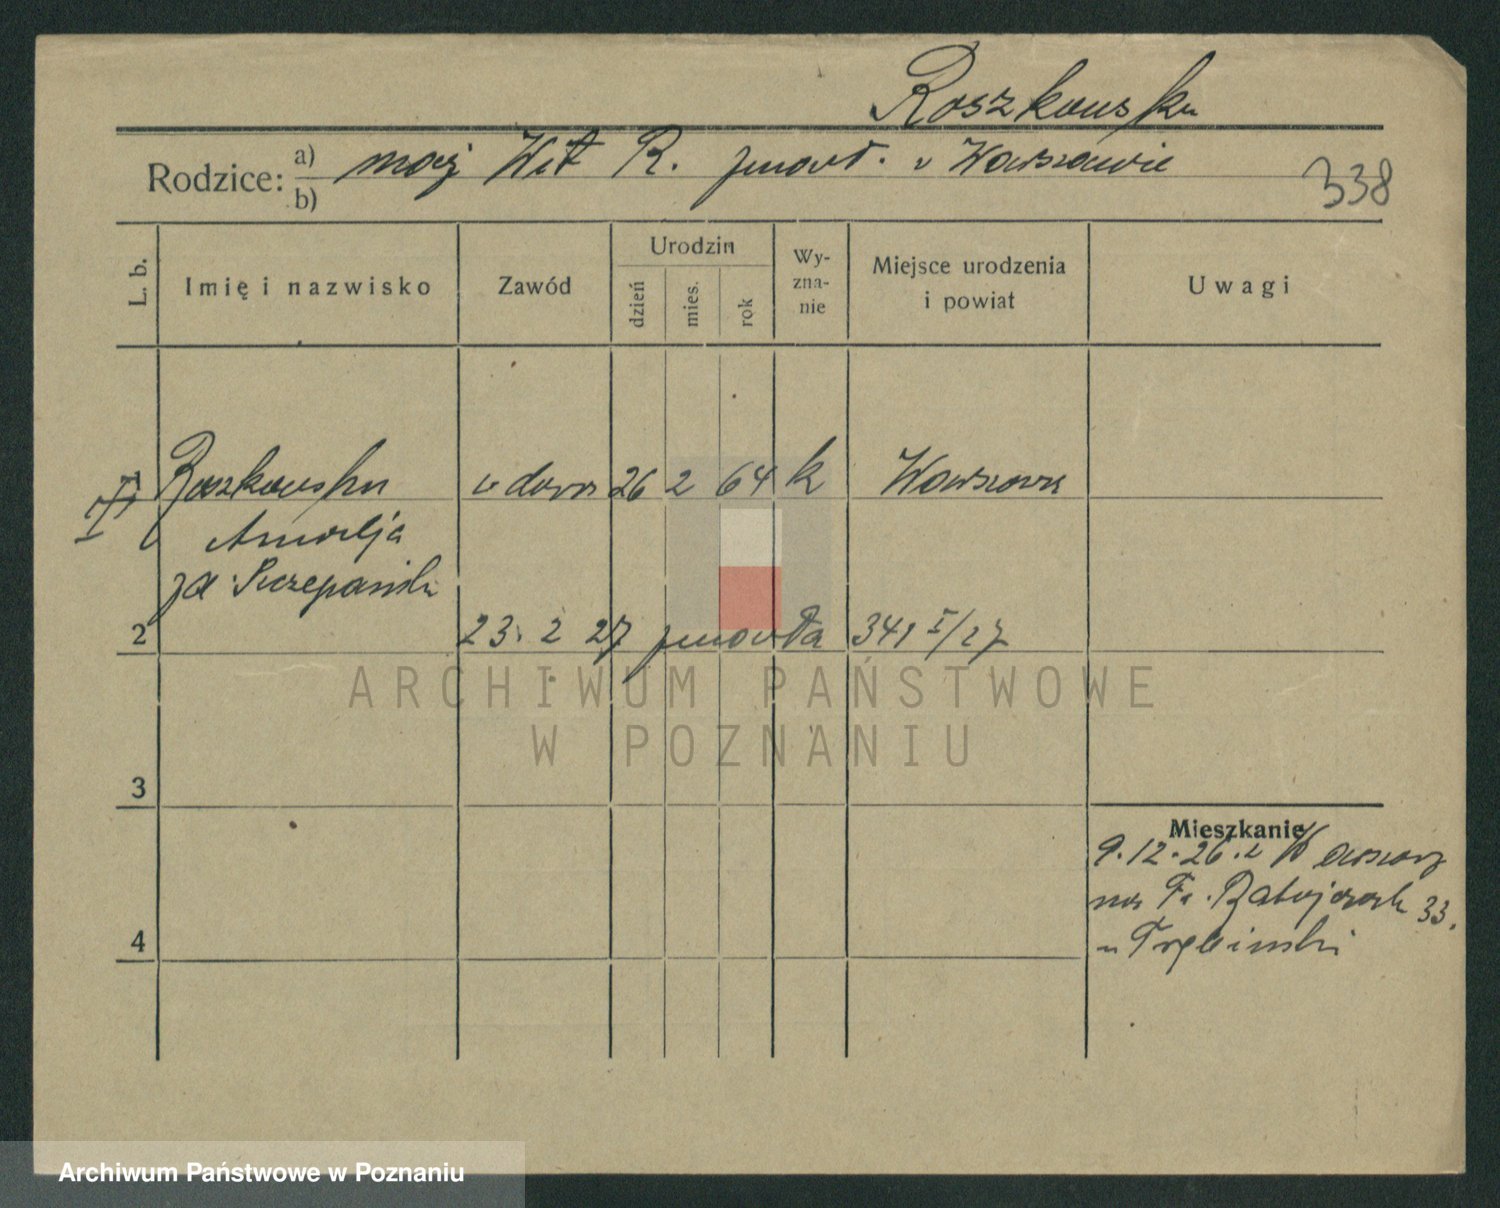 Roszkowska
Rodzice: a) mąż Wit R. zmarł. w Warszawie
b)
338
L. b.
Imię i nazwisko
Zawód
Urodzin
dzień
mies.
rok
Wy-
zna-
nie
Miejsce urodzenia
i powiat
Uwagi
Roszkowska wdowa 26 2 64 k Warszawa
Amalja
zd. Szczepańska
2 23. 2 27 zmarła 341 I/27
ARCHIWUM PAŃSTWOWE
W POZNANIU
3
Mieszkanie
9.12.26. z Warszawy
na Fr. Ratajczak 33.
4
Archiwum Państwowe w Poznaniu